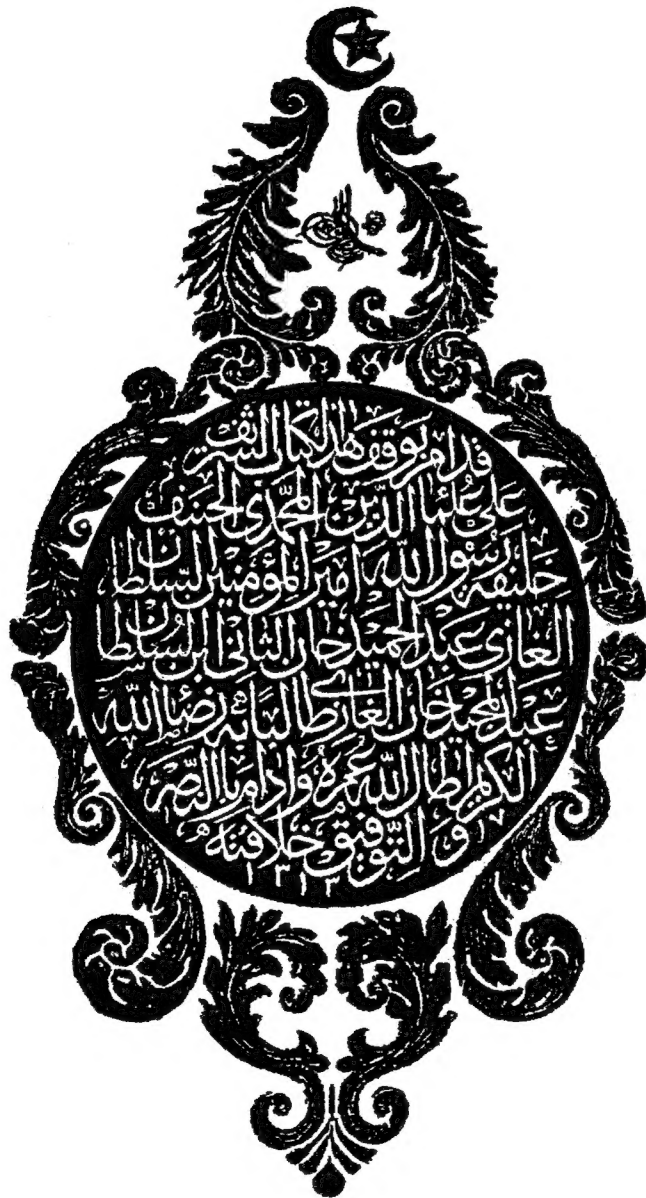 قد امر بوقف هذا الكتاب الشريف
على علماء الدين المحمدي الحنيف
خليفة رسول الله امير المؤمنين السلطان
الغازي عبد الحميد خان الثاني ابن السلطان
عبد المجيد خان الغازي طالبا به رضاء الله
الكريم اطال الله عمره وادام بالنصر
والتوفيق خلافته
١٣١٣